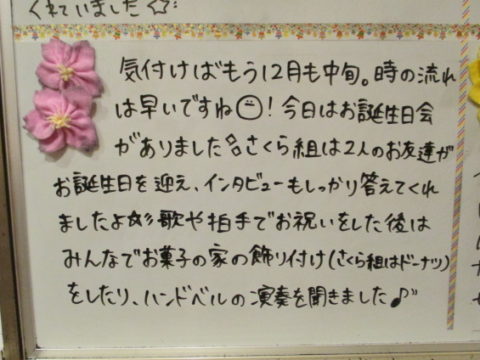 くれていました☆
気付けばもう12月も中旬。時の流れ
は早いですね☺!今日はお誕生日会
がありました さくら組は2人のお友達が
お誕生日を迎え、インタビューもしっかり答えてくれ
ましたよ 歌や拍手でお祝いをした後は
みんなでお菓子の家の飾り付け(さくら組はドーナツ)
をしたり、ハンドベルの演奏を聞きました♪"